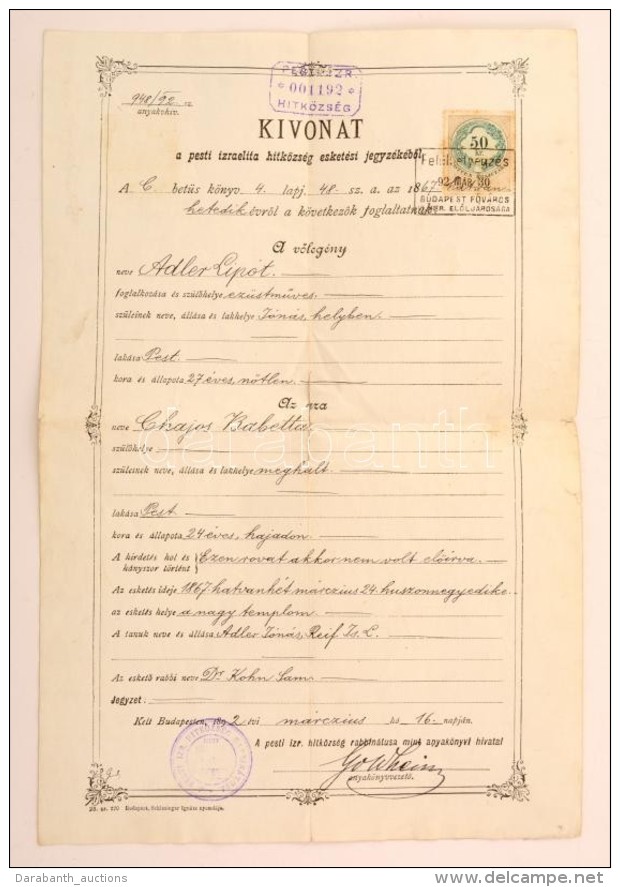 948/92. sz.
anyakvkiv.
PESTI IZR.
* 001192 *
HITKÖZSÉG
KIVONAT
a pesti izraelita hitközség esketési jegyzékéből.
50
Felülbélyegzés
92 MÁR 30
BUDAPEST FŐVÁROS
KER. ELÖLJÁRÓSÁGA
A C. betüs könyv. 4. lapj. 48. sz. a. az 1867
hetedik évről a következők foglaltatnak:
A vőlegény
neve Adler Lipót.
foglalkozása és szülőhelye ezüstműves.
szüleinek neve, állása és lakhelye Jónás, helyben.
lakása Pest
kora és állapota 27 éves, nőtlen.
Az ara
neve Chajos Babetta
szülőhelye
szüleinek neve, állása és lakhelye meghalt.
lakása Pest.
kora és állapota 24 éves, hajadon.
A hirdetés hol és hányszor történt } Ezen rovat akkor nem volt előirva.
Az esketés ideje 1867. hatvanhét márczius 24. huszonnegyedike.
az esketés helye a nagy templom.
A tanuk neve és állása Adler Jónás, Reif Is. L.
Az eskető rabbi neve Dr. Kohn Sam.
Jegyzet.
Kelt Budapesten, 1892 évi márczius hó 16. napján.
A pesti izr. hitközség rabbinátusa mint anyakönyvi hivatal
Goldheim
anyakönyvvezető.
Budapest, Schlesinger Ignácz nyomdája.
darabanth
Darabanth_auctions
www.delcampe.net